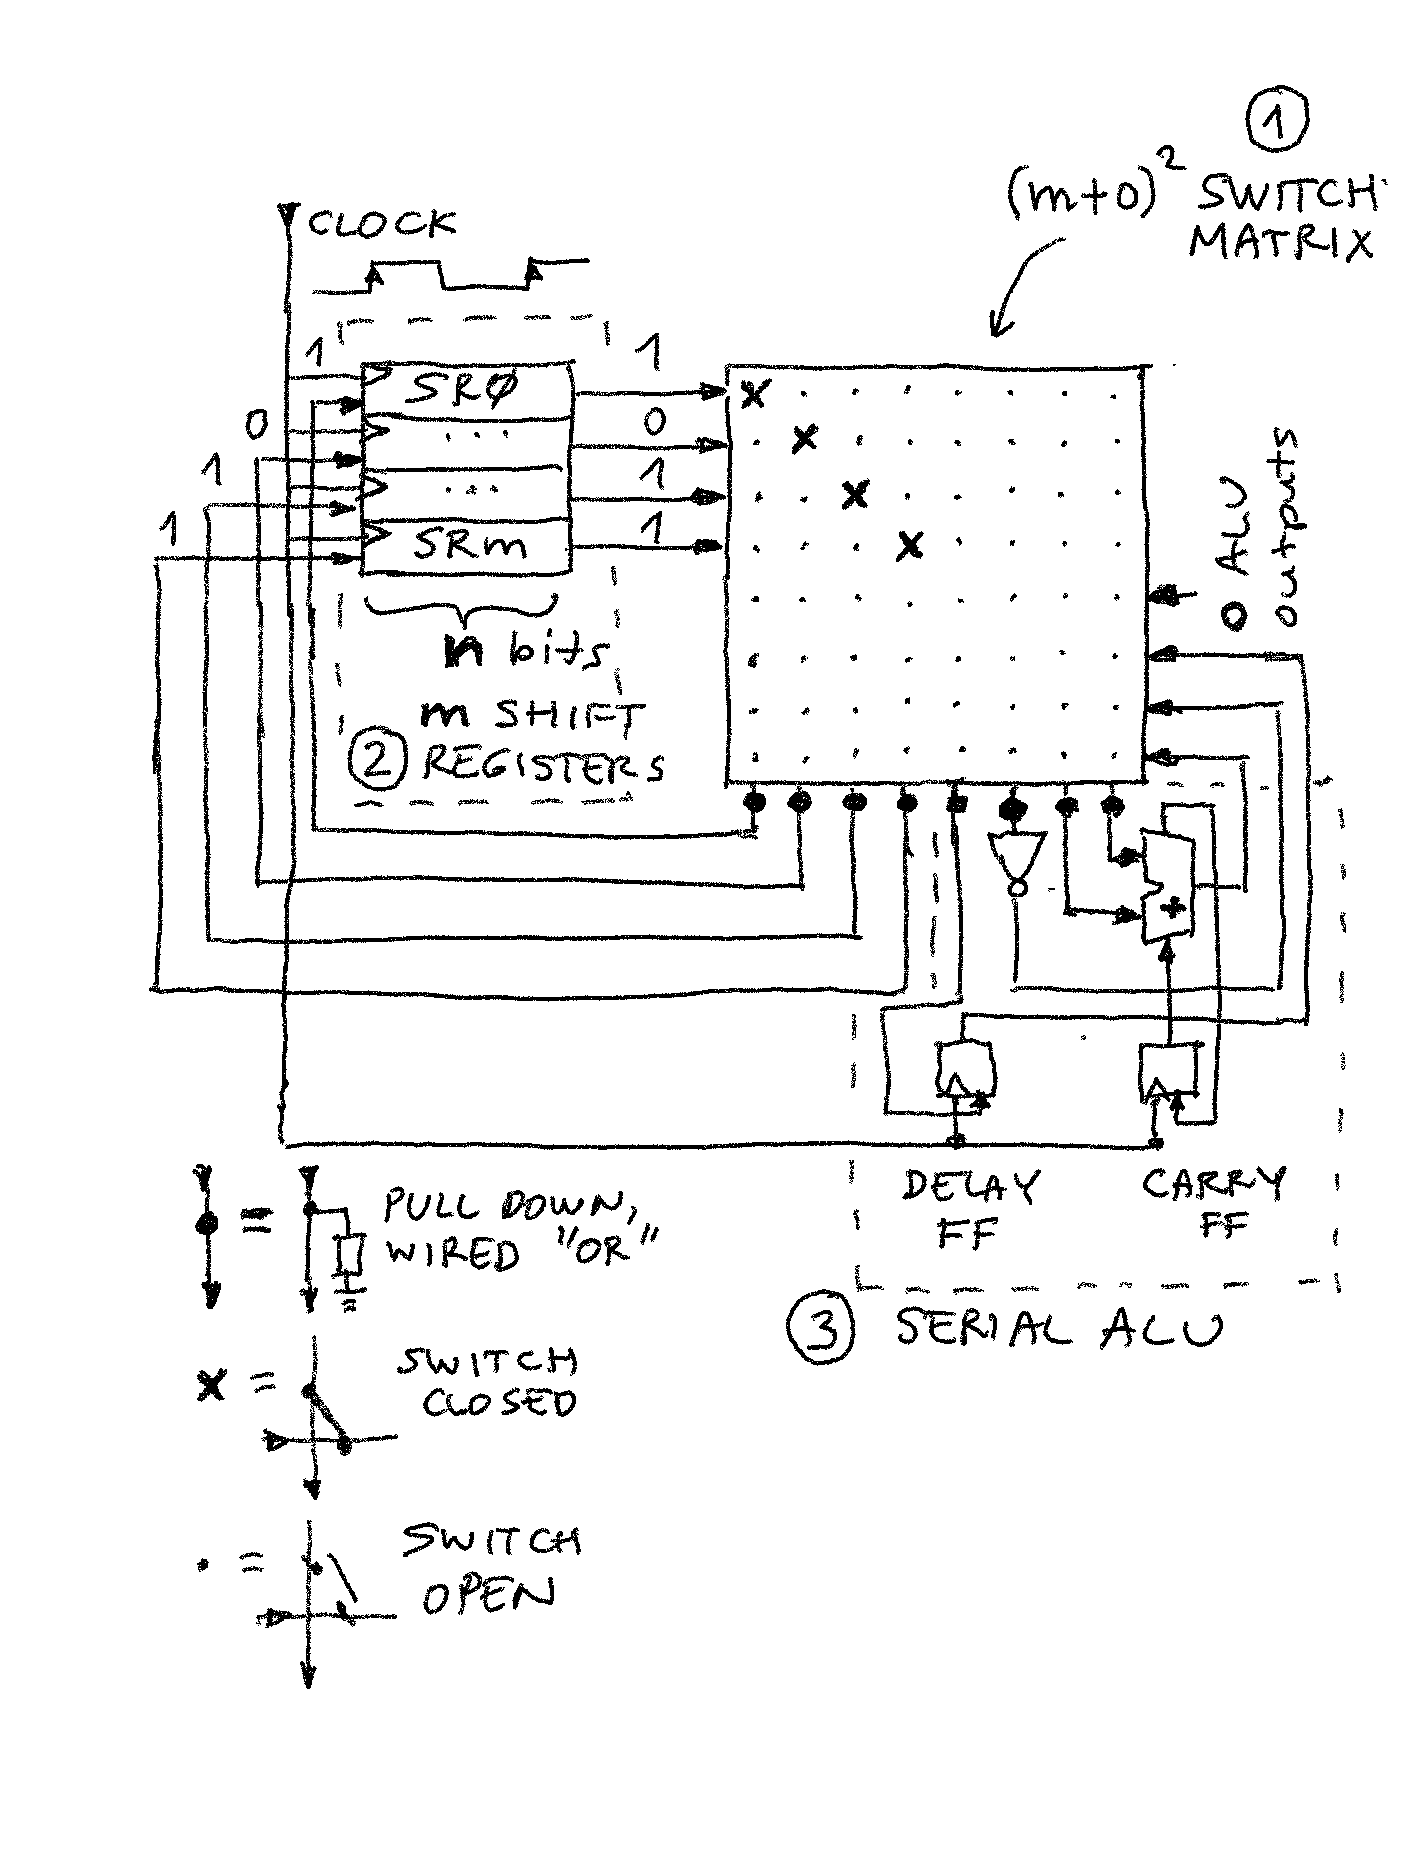 1
(m+o)² SWITCH
MATRIX
CLOCK
1
1
SRØ
0
0
...
1
1
...
1
1
SRm
n bits
m SHIFT
2 REGISTERS
o ALU
outputs
+
DELAY
FF
CARRY
FF
3 SERIAL ALU
= PULL DOWN,
WIRED "OR"
x = SWITCH
CLOSED
. = SWITCH
OPEN